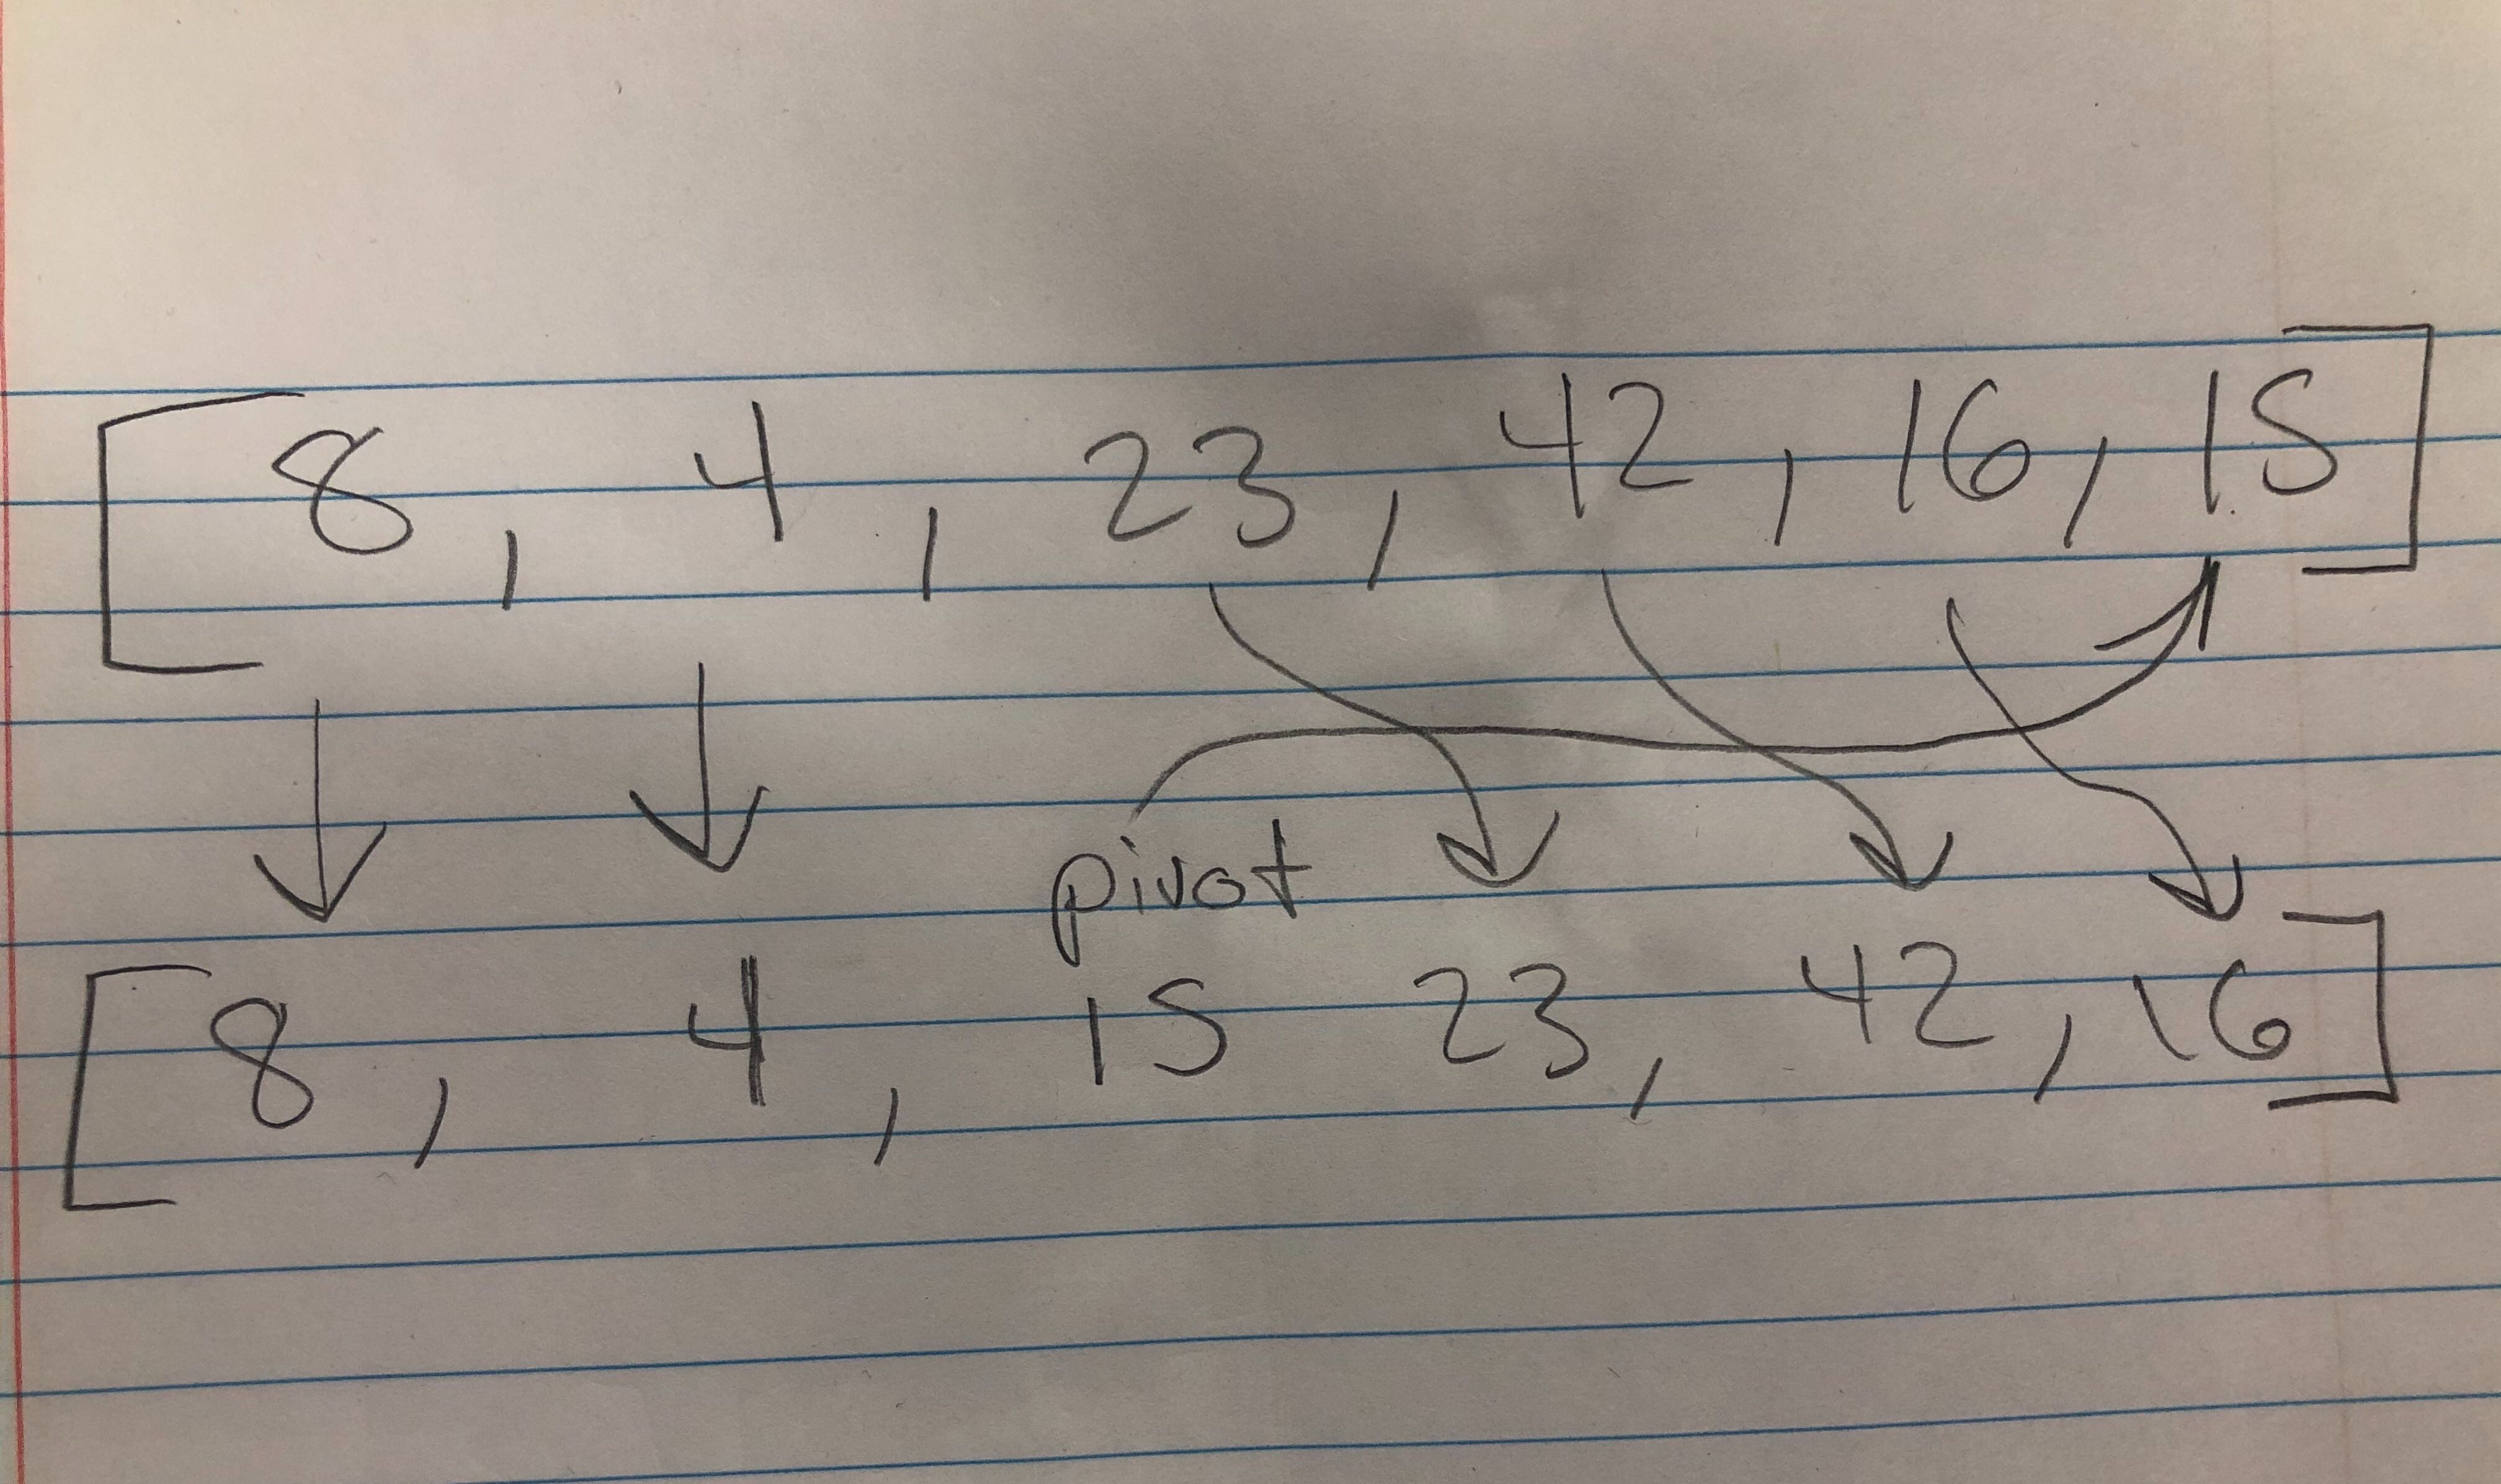 [8, 4, 23, 42, 16, 15]
pivot
[8, 4, 15 23, 42, 16]